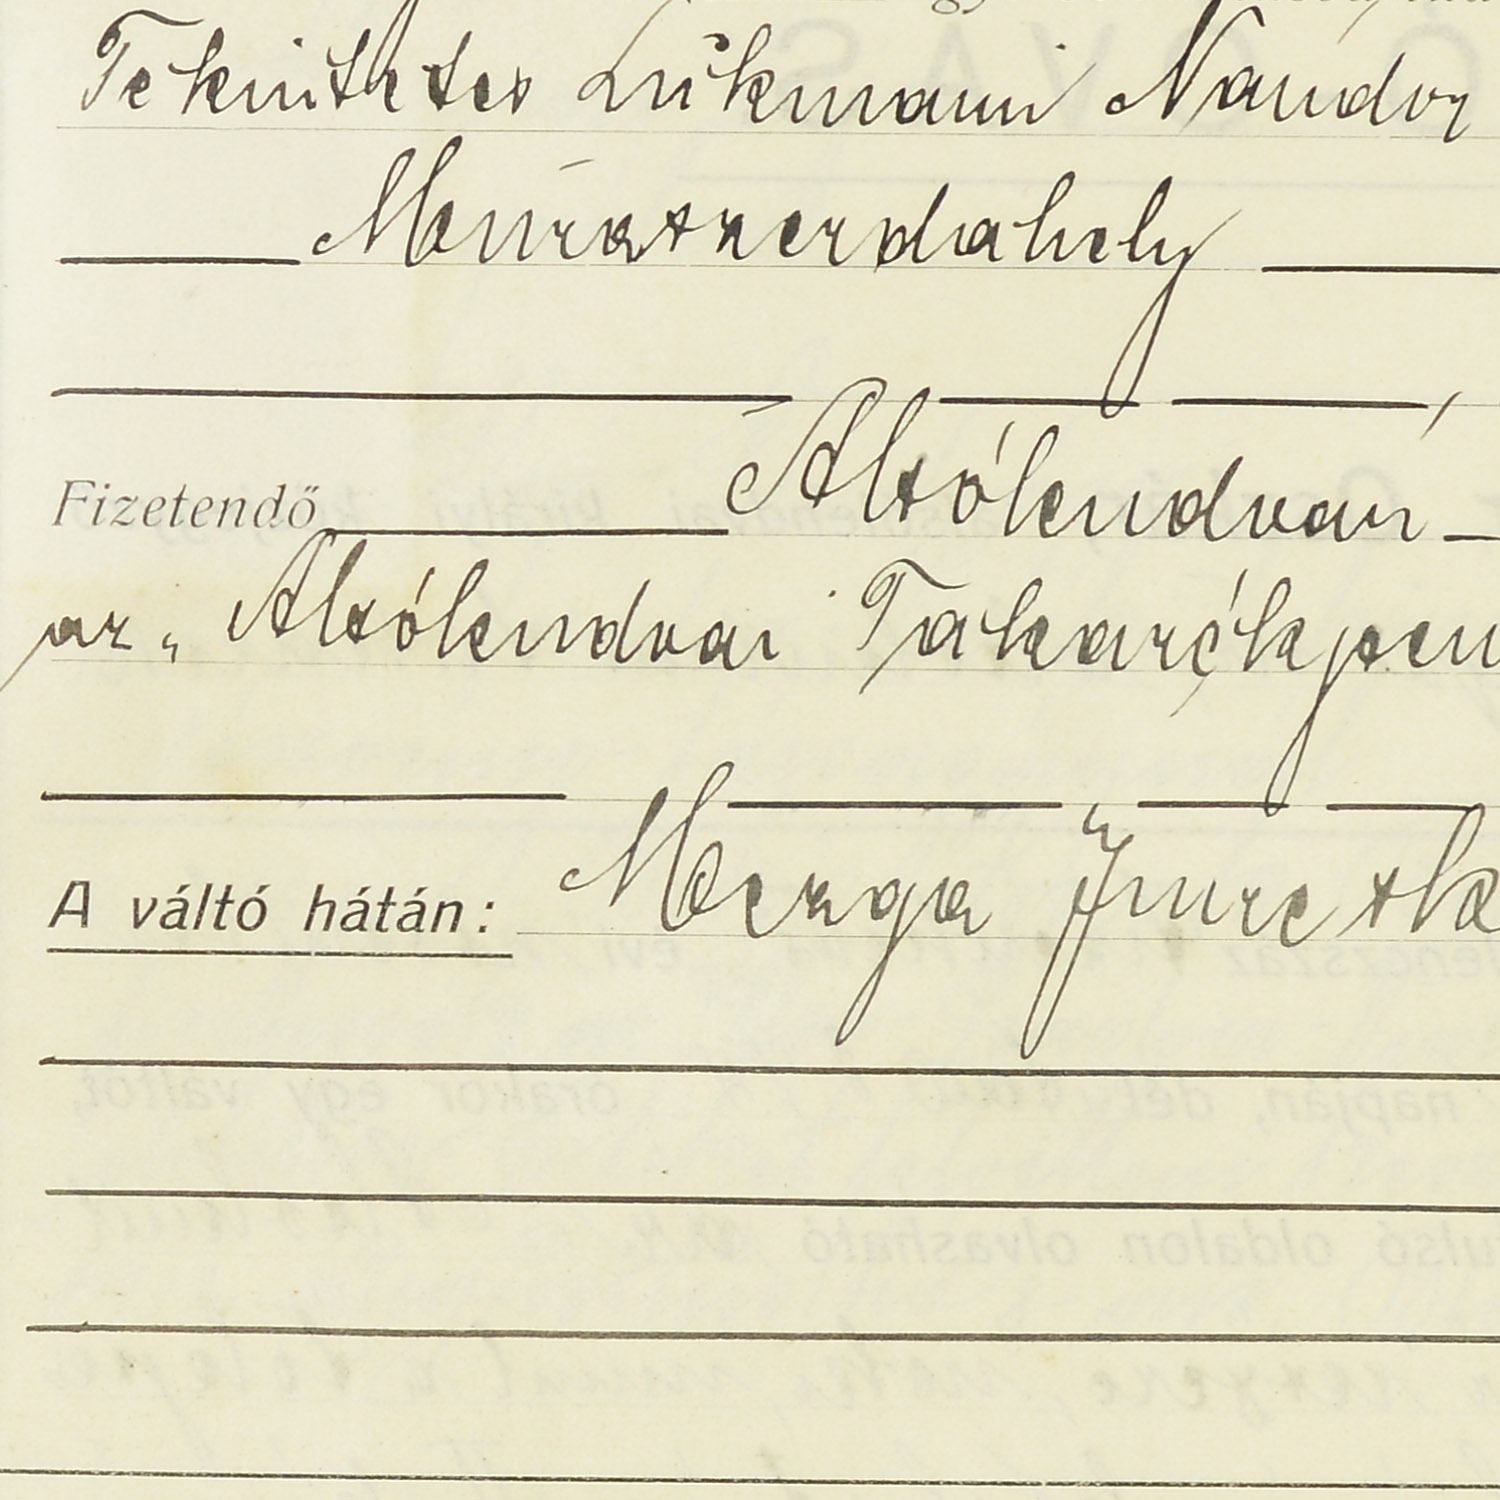 Tekintetes Lükmann Nándor
Muraszerdahely
Fizetendő Alsólendván
az „Alsólendvai Takarékpén
A váltó hátán: Merga Imre